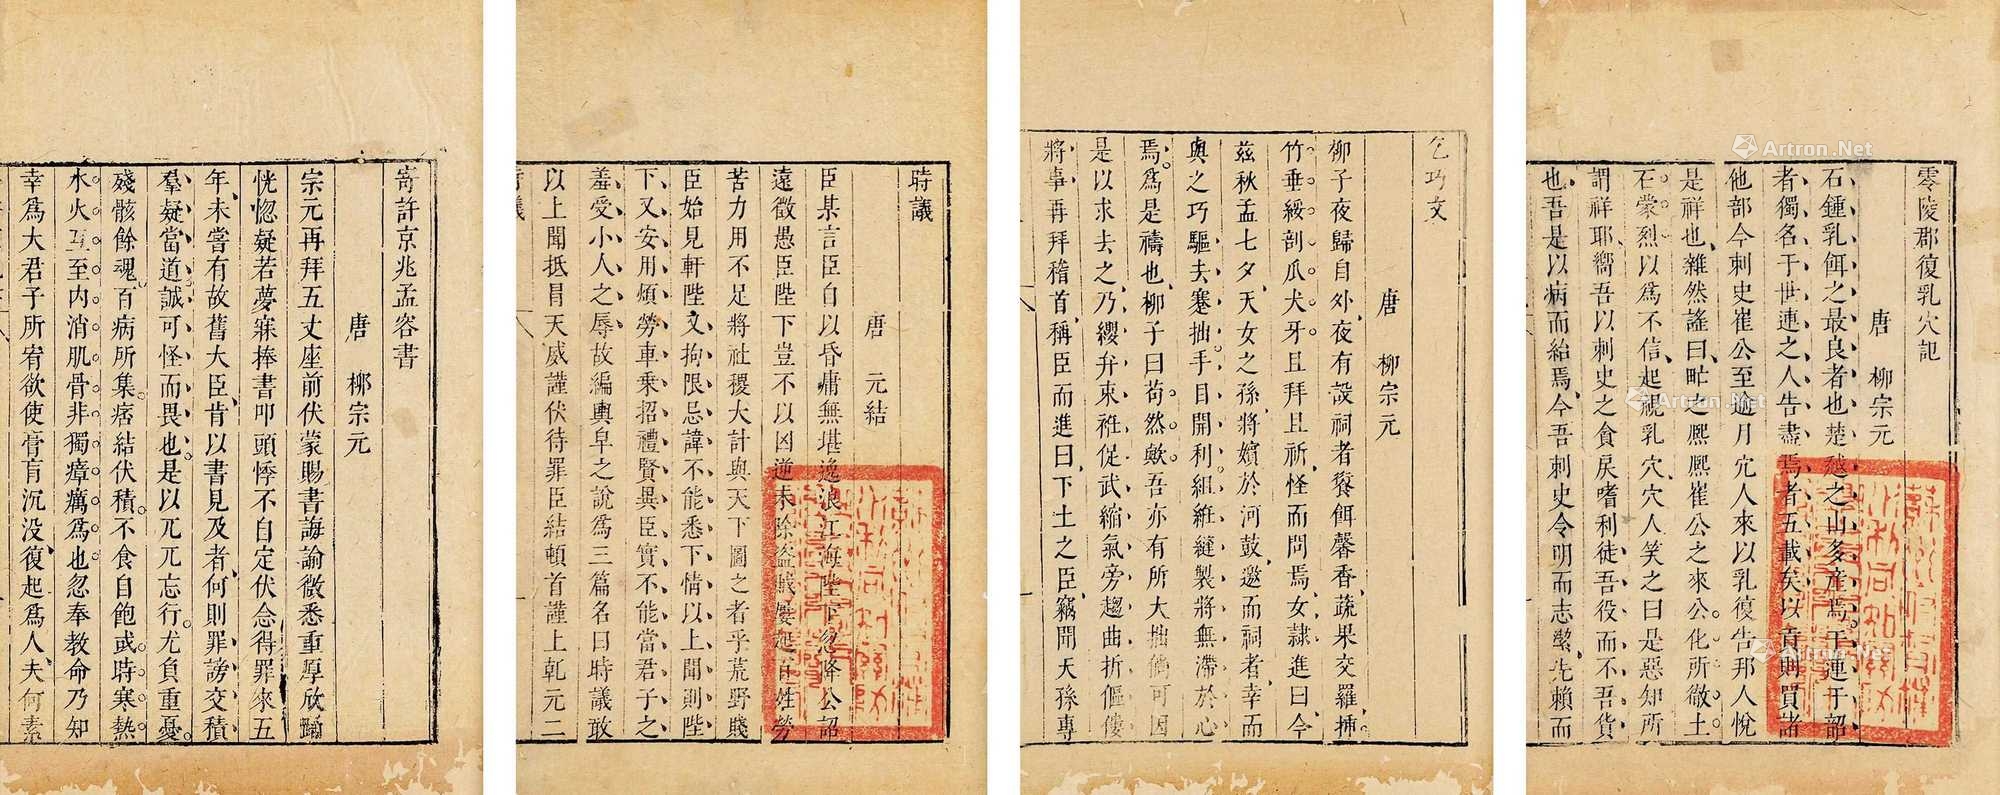 寄許京兆孟容書
唐　柳宗元
宗元再拜五丈座前伏蒙賜書誨諭微悉重厚欣踊
恍惚疑若夢寐捧書叩頭悸不自定伏念得罪來五
年未嘗有故舊大臣肯以書見及者何則罪謗交積
羣疑當道誠可怪而畏也是以兀兀忘行尤負重憂
殘骸餘魂百病所集痞結伏積不食自飽或時寒熱
水火互至內消肌骨非獨瘴癘爲也忽奉教命乃知
幸爲大君子所宥欲使膏肓沉没復起爲人夫何素
時議
唐　元結
臣某言臣自以昏庸無堪逸浪江海陛下忽降公詔
遠徵愚臣陛下豈不以凶逆未除盜賊屢起百姓勞
苦力用不足將社稷大計與天下圖之者乎荒野賤
臣始見軒陛又拘限忌諱不能悉下情以上聞則陛
下又安用煩勞車乘招禮賢異臣實不能當君子之
羞受小人之辱故編輿皁之說爲三篇名曰時議敢
以上聞抵冒天威謹伏待罪臣結頓首謹上乾元二
時議
乞巧文
唐　柳宗元
柳子夜歸自外夜有設祠者餈餌馨香蔬果交羅揷
竹垂綏剖瓜犬牙且拜且祈怪而問焉女隸進曰今
茲秋孟七夕天女之孫將嬪於河鼓邀而祠者幸而
與之巧驅去蹇拙手目開利組絍縫製將無滯於心
焉爲是禱也柳子曰苟然歟吾亦有所大拙儻可因
是以求去之乃纓弁束袵促武縮氣旁趨曲折傴僂
將事再拜稽首稱臣而進曰下土之臣竊聞天孫專
零陵郡復乳穴記
唐　柳宗元
石鍾乳餌之最良者也楚越之山多產焉于連于韶
者獨名于世連之人告盡焉者五載矣以貢則買諸
他部今刺史崔公至逾月穴人來以乳復告邦人悅
是祥也雜然謠曰甿之熈熈崔公之來公化所徹土
石蒙烈以爲不信起視乳穴穴人笑之曰是惡知所
謂祥耶嚮吾以刺史之貪戾嗜利徒吾役而不吾貨
也吾是以病而紿焉今吾刺史令明而志潔先賴而
Artron.Net
Artron.Net
Artron.Net